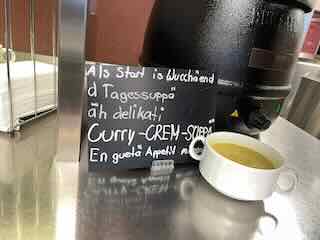 Als Start is Wucchäend
d Tagessuppä
äh delikati
Curry-CREM-SOPPÄ
En guetä Appetit